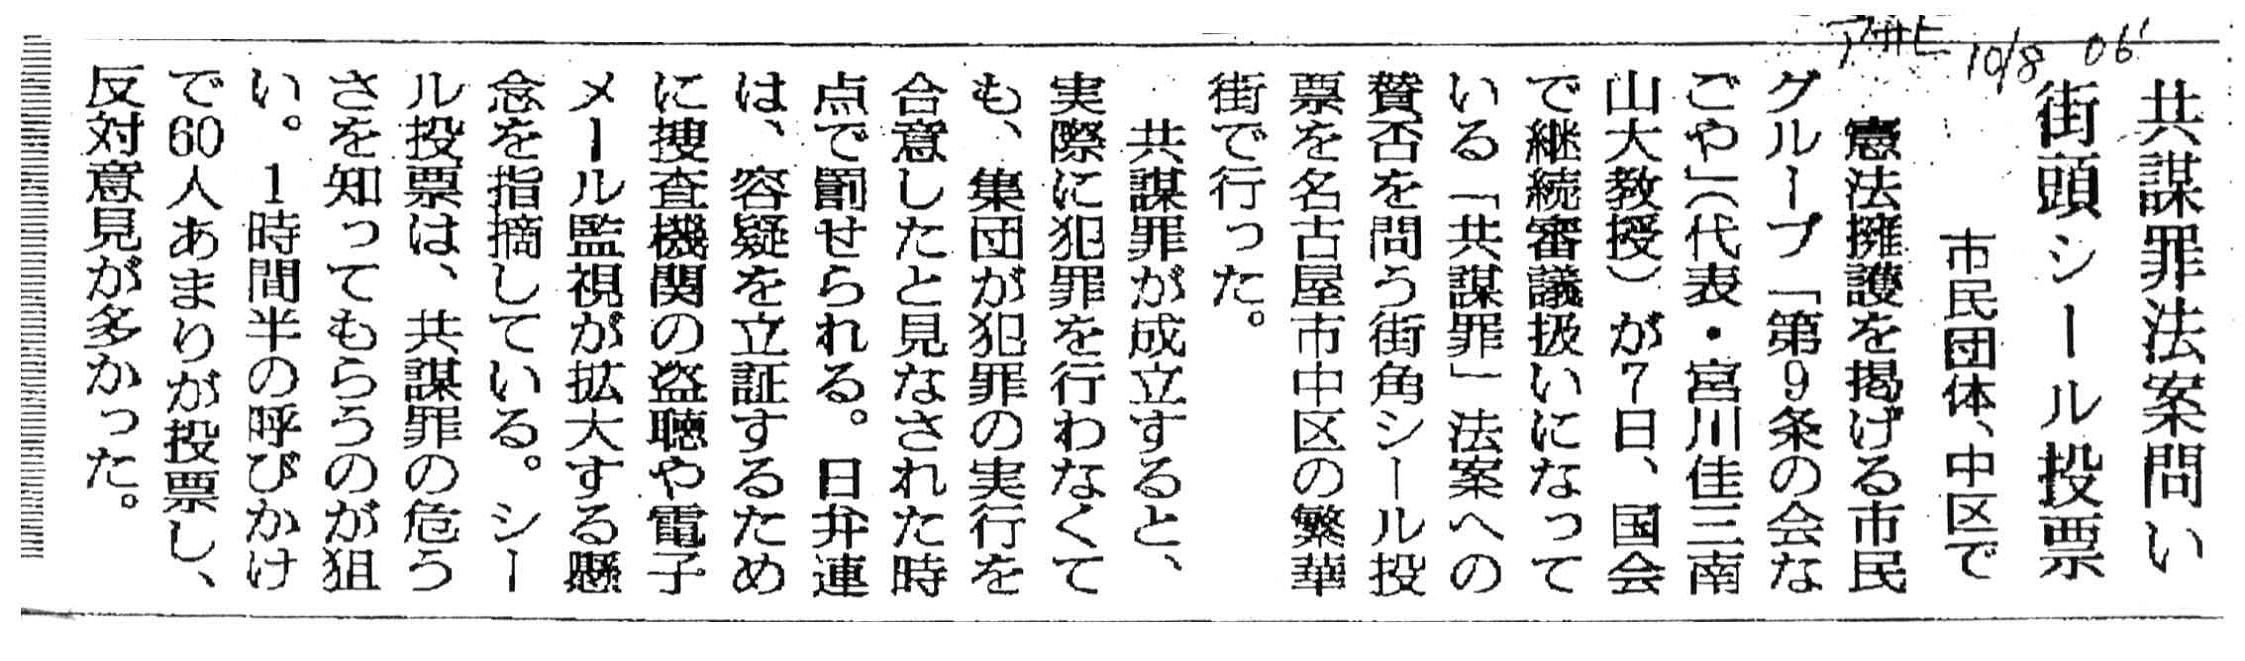 アサヒ 10/8 06'
共謀罪法案問い
街頭シール投票
市民団体、中区で
憲法擁護を掲げる市民
グループ「第9条の会な
ごや」(代表・宮川佳三南
山大教授)が7日、国会
で継続審議扱いになって
いる「共謀罪」法案への
賛否を問う街角シール投
票を名古屋市中区の繁華
街で行った。
共謀罪が成立すると、
実際に犯罪を行わなくて
も、集団が犯罪の実行を
合意したと見なされた時
点で罰せられる。日弁連
は、容疑を立証するため
に捜査機関の盗聴や電子
メール監視が拡大する懸
念を指摘している。シー
ル投票は、共謀罪の危う
さを知ってもらうのが狙
い。1時間半の呼びかけ
で60人あまりが投票し、
反対意見が多かった。